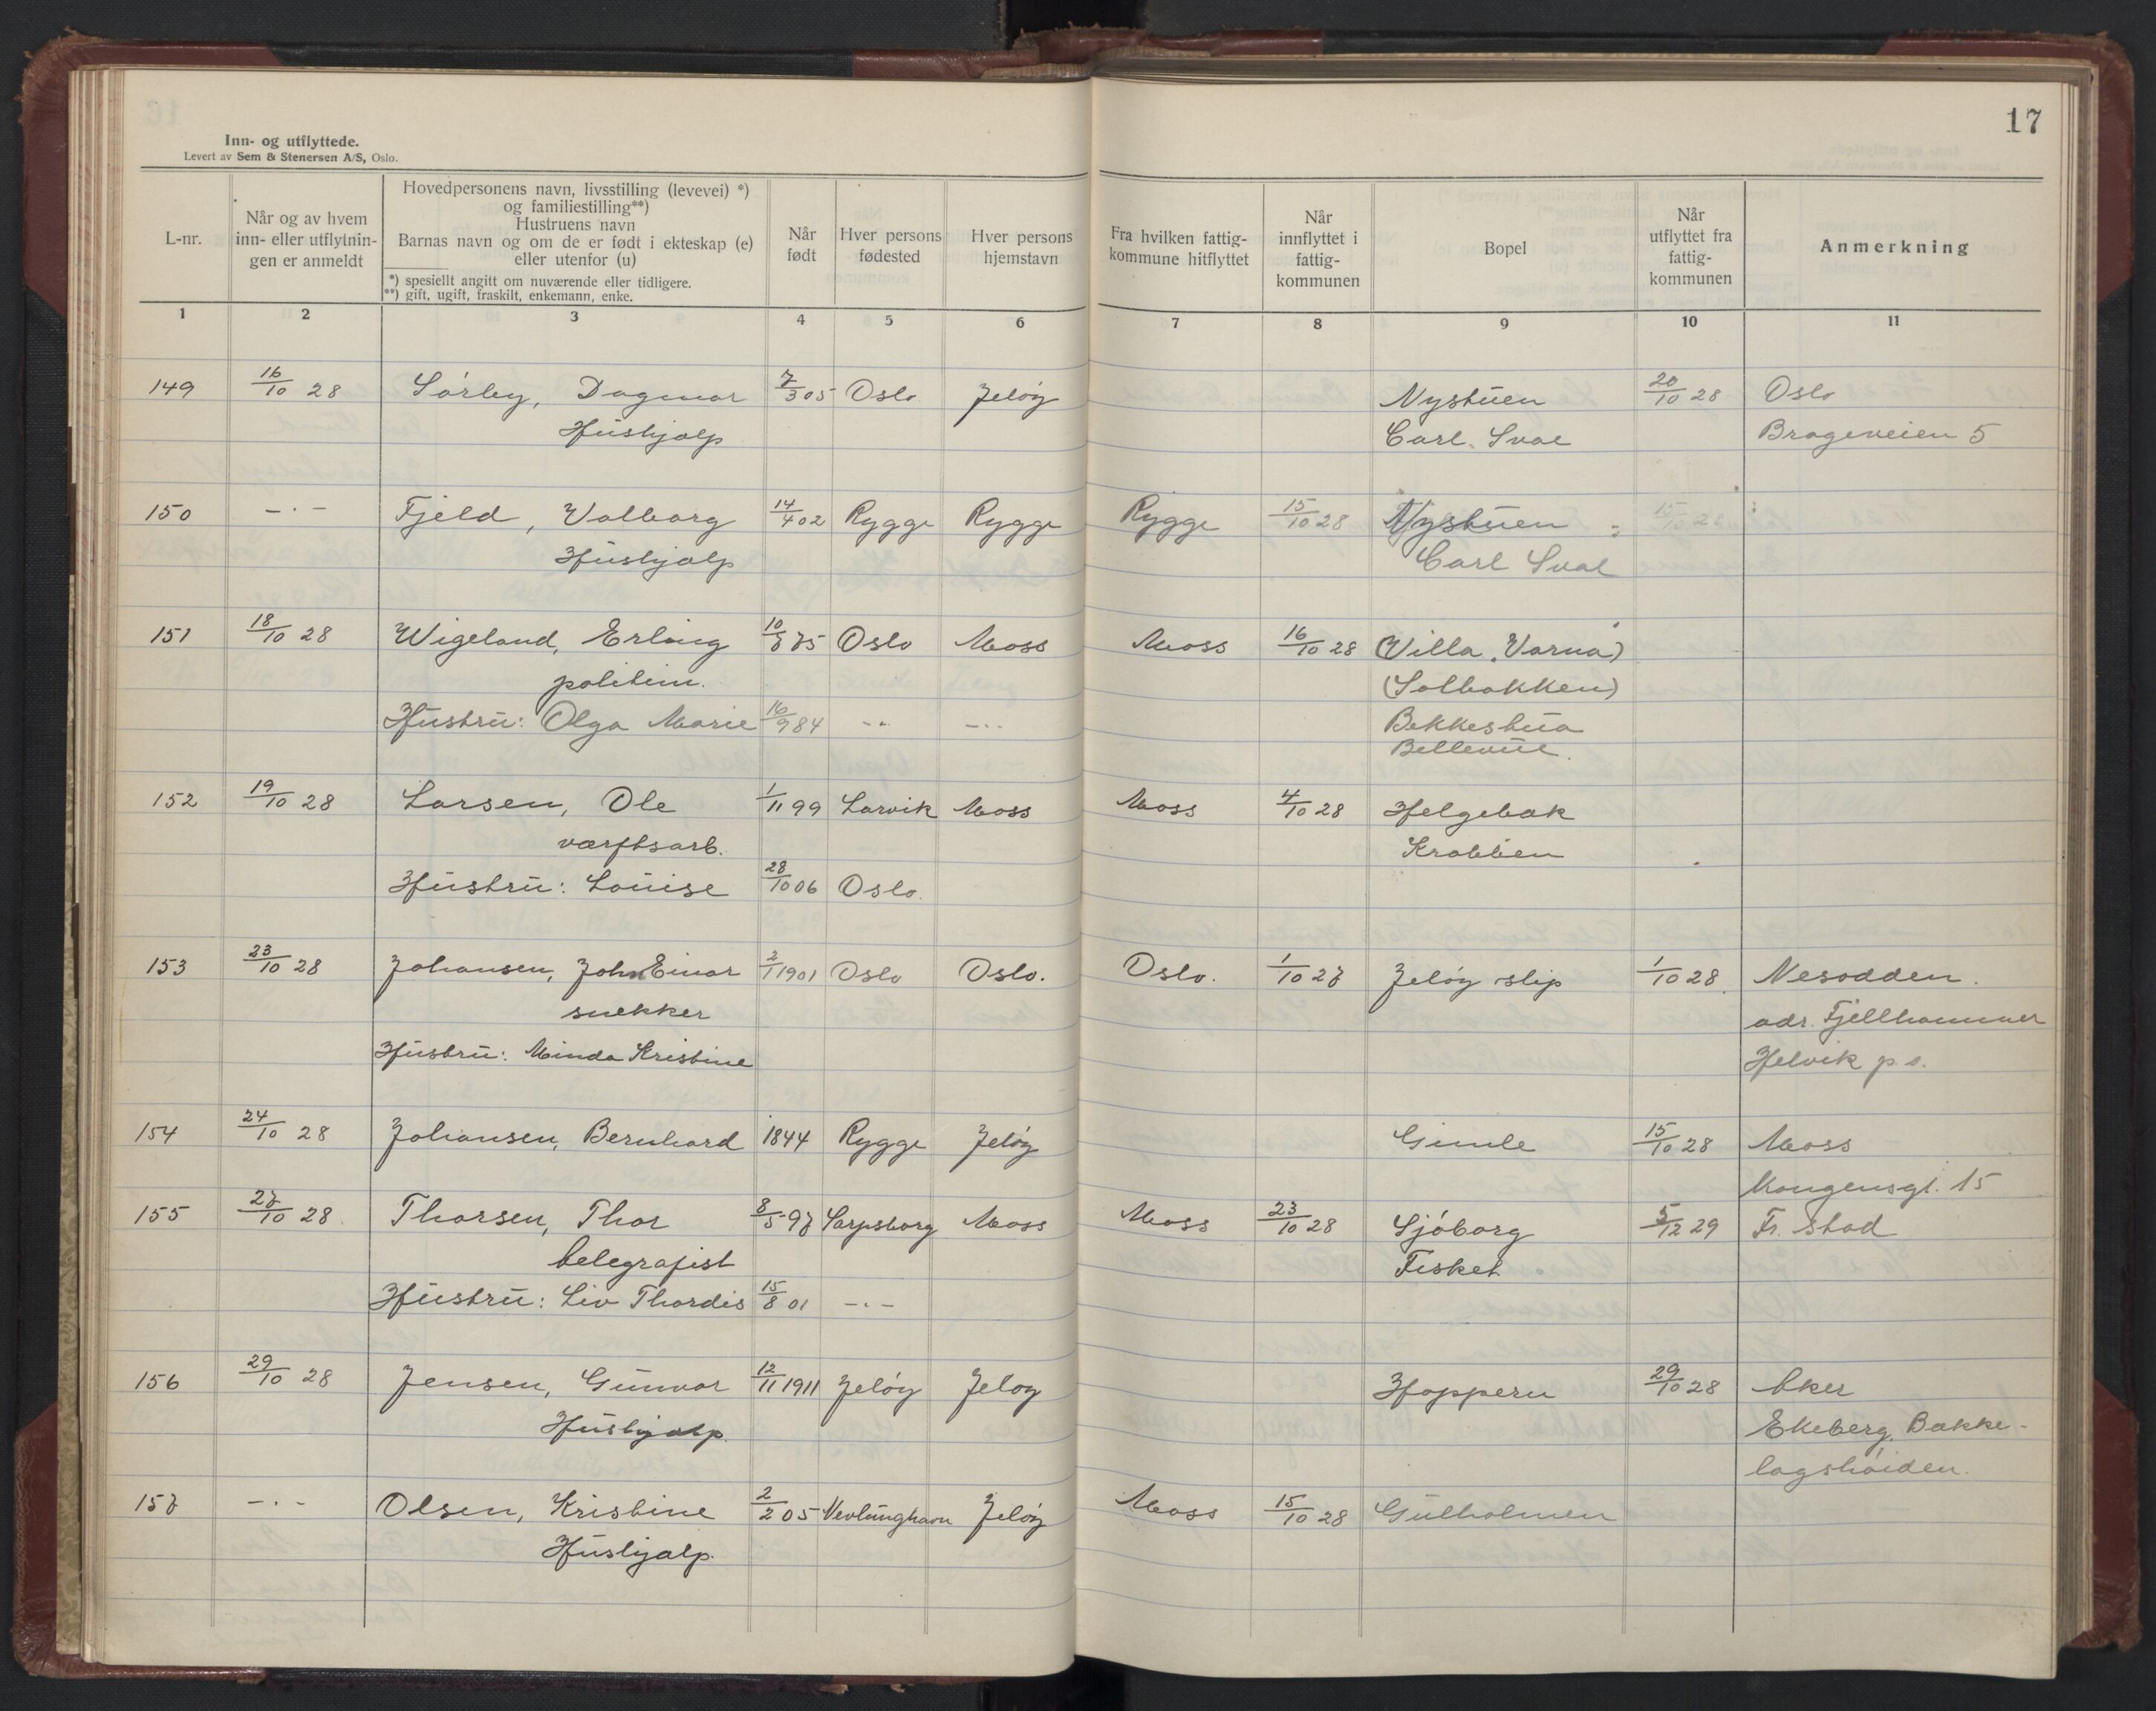 17
Inn- og utflyttede.
Levert av Sem & Stenersen A/S, Oslo.
L-nr.
Når og av hvem
inn- eller utflytnin-
gen er anmeldt
Hovedpersonens navn, livsstilling (levevei) *)
og familiestilling**)
Hustruens navn
Barnas navn og om de er født i ekteskap (e)
eller utenfor (u)
*) spesiellt angitt om nuværende eller tidligere.
**) gift, ugift, fraskilt, enkemann, enke.
Når
født
Hver persons
fødested
Hver persons
hjemstavn
Fra hvilken fattig-
kommune hitflyttet
Når
innflyttet i
fattig-
kommunen
Bopel
Når
utflyttet fra
fattig-
kommunen
Anmerkning
1 2 3 4 5 6 7 8 9 10 11
149 16/10 28 Sørby, Dagmar 7/3 05 Oslo Jeløy Nystuen 20/10 28 Oslo
Hushjalp Carl Sval Brageveien 5
150 -.- Fjeld, Valborg 14/4 02 Rygge Rygge Rygge 15/10 28 Nystuen 15/10 28
Hushjalp Carl Sval
151 18/10 28 Wigeland, Erling 10/7 75 Oslo Moss Moss 16/10 28 (Villa Varna)
politim. (Solbakken)
Hustru: Olga Marie 16/9 84 -.- -.- Bekkestua
Bellevue.
152 19/10 28 Larsen, Ole 1/11 99 Larvik Moss Moss 4/10 28 Helgebak
værftsarb. Krabben
Hustru: Louise 28/10 06 Oslo.
153 23/10 28 Johansen, John Einar 2/1 1901 Oslo Oslo. Oslo. 1/10 27 Jeløy slip 1/10 28. Nesodden.
snekker adr. Fjellhammer
Hustru: Minda Kristine Helvik p.s.
154 24/10 28 Johansen, Bernhard 1844 Rygge Jeløy Gimle 15/10 28 Moss
Kongensgt. 15
155 27/10 28. Thorsen, Thor 8/5 97 Sarpsborg Moss Moss 23/10 28 Sjøborg 5/12 29 Fr. stad
telegrafist Fisket.
Hustru: Liv Thordis 15/8 01 -.-
156 29/10 28 Jensen, Gunvor 12/11 1911 Jeløy Jeløy Hoppern 29/10 28 Aker
Hushjalp. Ekeberg. Bække-
lagshøiden.
157 -.- Olsen, Kristine 2/2 05 Nevlunghavn Jeløy Moss 15/10 28 Gulholmen
Hushjalp.